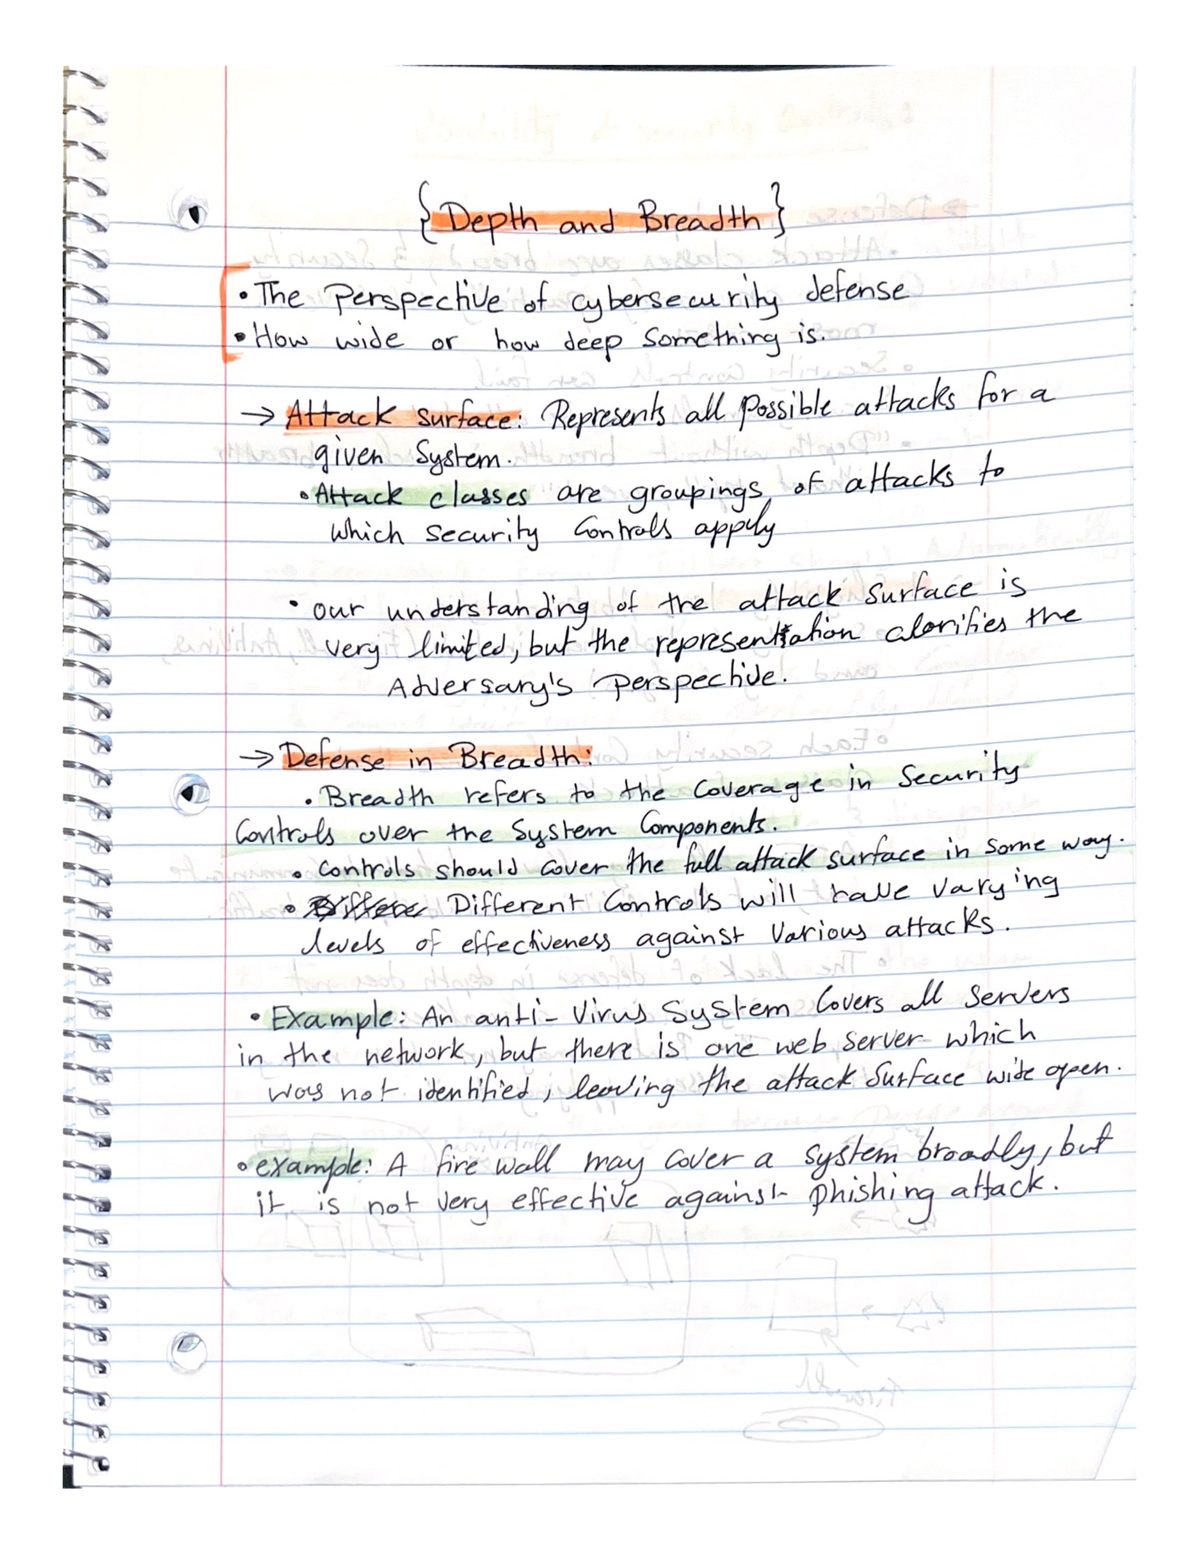 {Depth and Breadth}
• The Perspective of cybersecurity defense
• How wide or how deep Something is.
→ Attack surface: Represents all possible attacks for a
given System.
• Attack classes are groupings of attacks to
which security Controls apply
• our understanding of the attack surface is
very limited, but the representation clarifies the
Adversary's perspective.
→ Defense in Breadth:
• Breadth refers to the Coverage in Security
Controls over the System Components.
• Controls should cover the full attack surface in some way.
• Different Controls will have varying
levels of effectiveness against Various attacks.
• Example: An anti-Virus System Covers all Servers
in the network, but there is one web server which
was not identified, leaving the attack Surface wide open.
• example: A fire wall may cover a system broadly, but
it is not very effective against phishing attack.